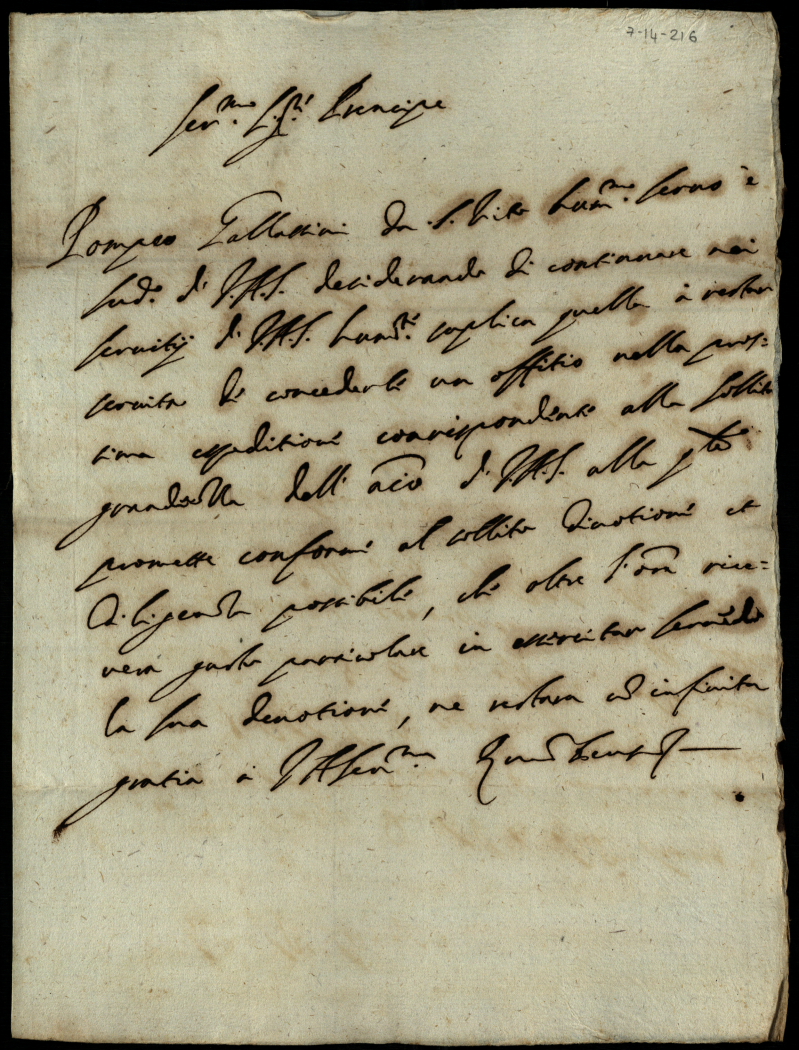 7-14-216
Ser.mo Sig.re Prencipe
Pompeo Gallassini da S. Vito hum.mo seruo è
sud.o di V.A.S. desiderando di continuare nei
seruitij di V.A.S. hum.te suplica quella à restar
seruita di concederli un offitio nella pros=
sima espeditione corrispondente alla sollita
grandezza dell' a͠io di V.A.S. alla q͠le
promette conforme al sollito diuotione et
diligenza possibile, che oltre l'on͠r rice=
uerà gusto particolare in essercitar seruendo
la sua deuotione, ne restarà co͠ infinita
gratia à V.A.Ser.ma